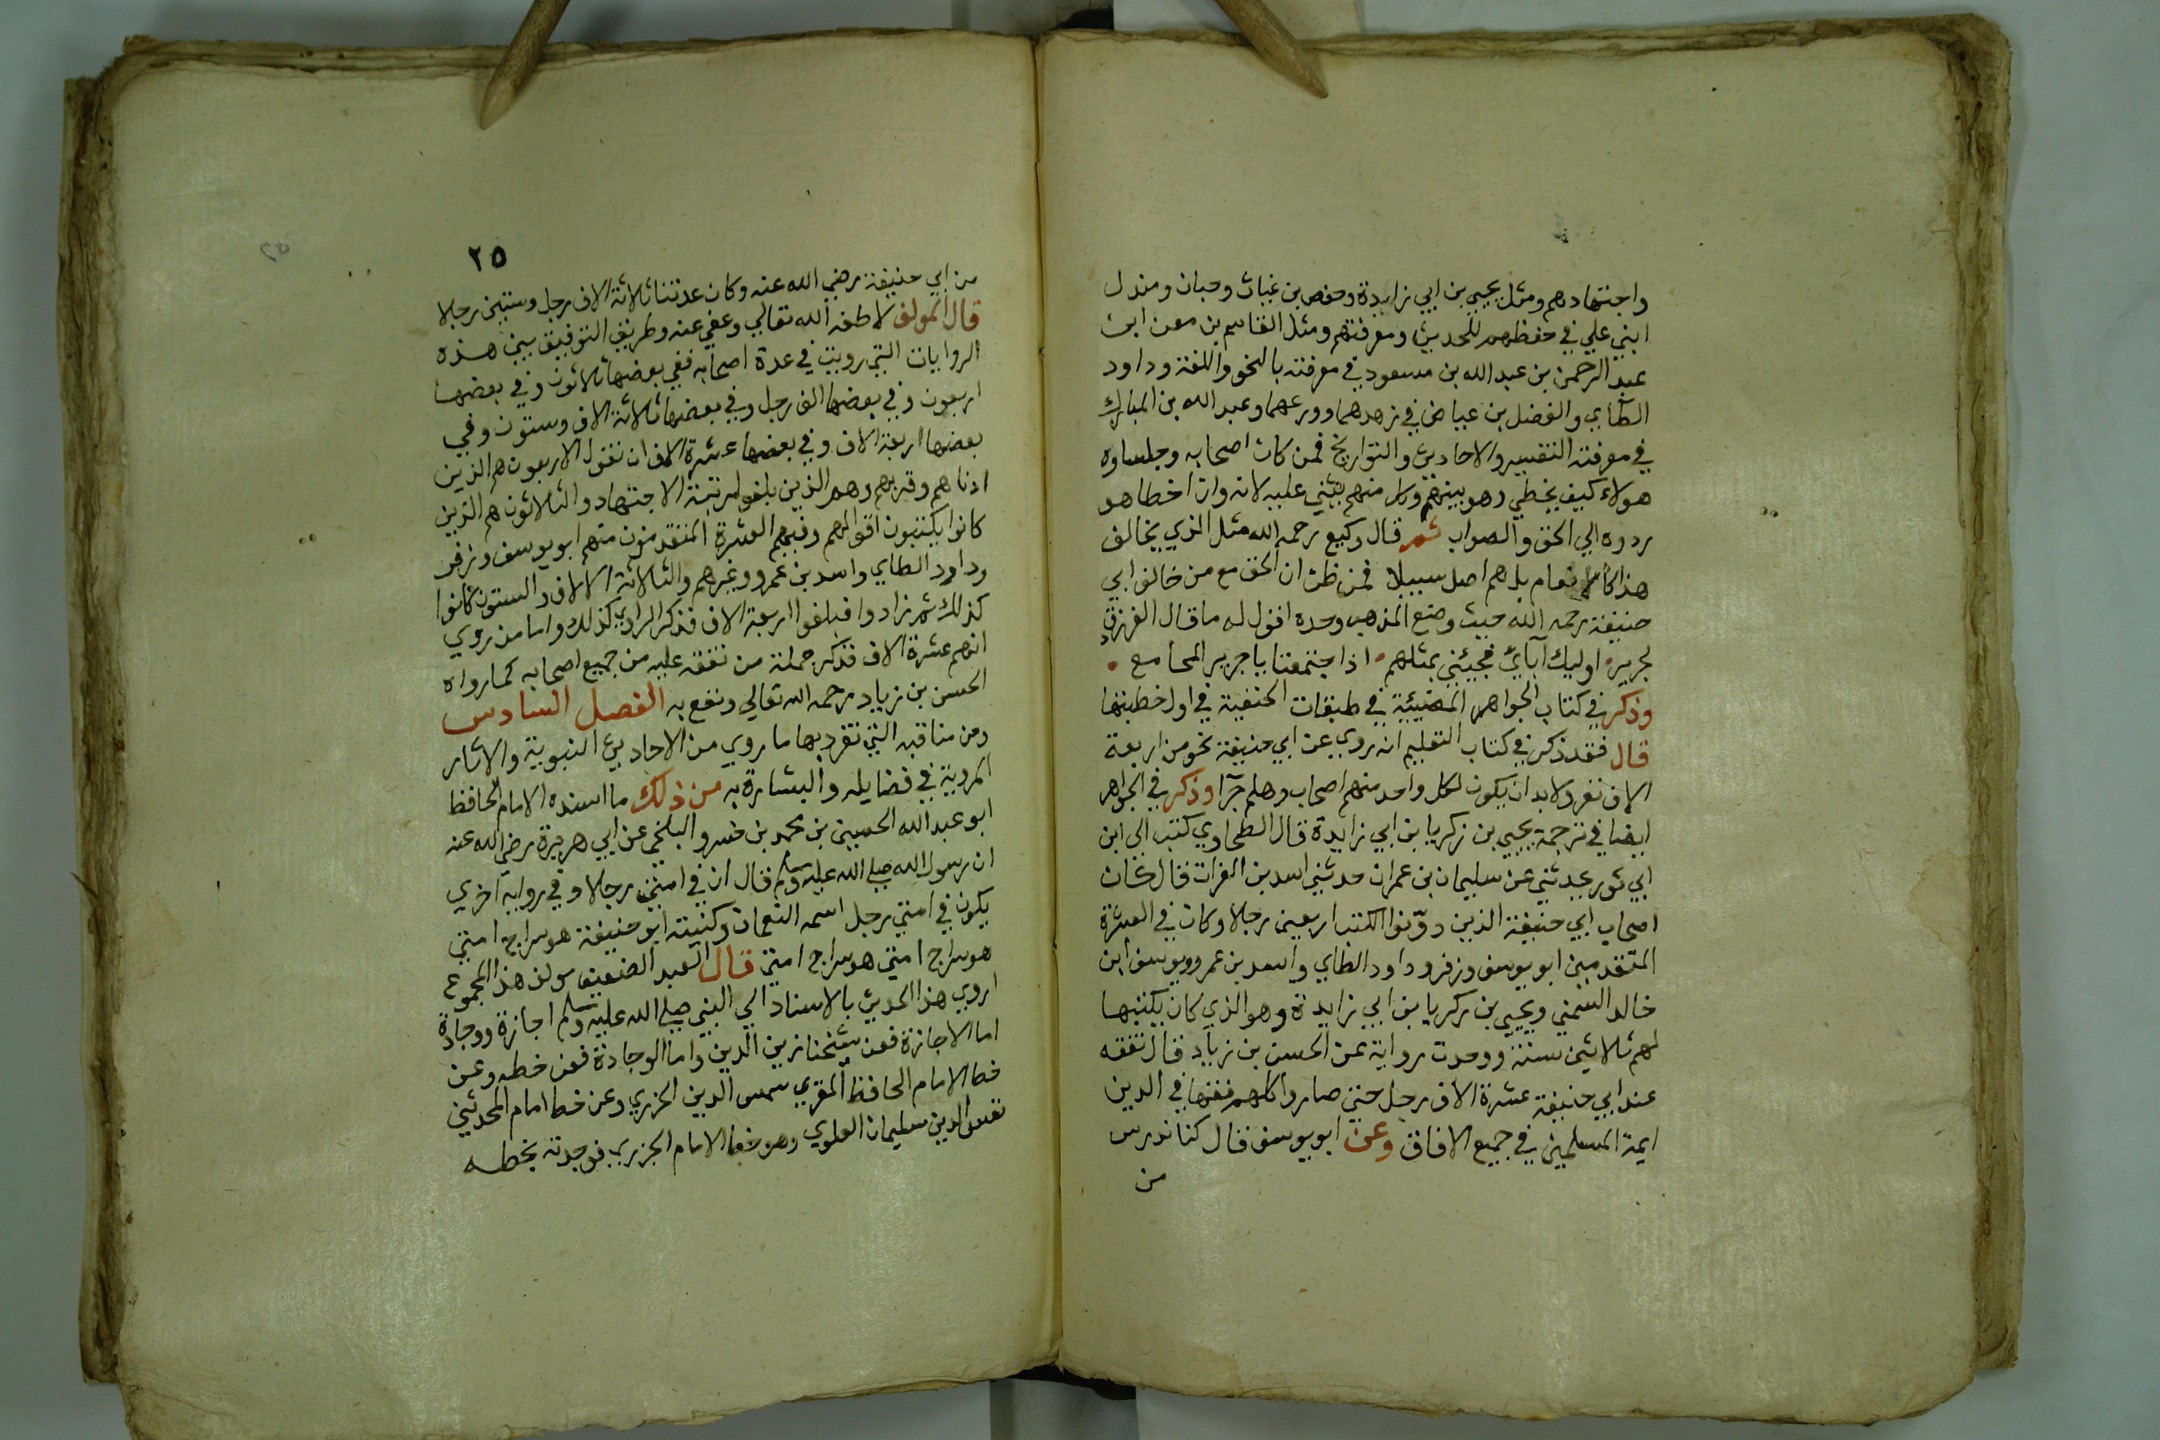 واجتهادهم ومثل يحيي بن ابي زايدة وحفص بن غياث وحبان ومندل
ابني علي في حفظهم للحديث ومعرفتهم ومثل القاسم بن معن ابن
عبد الرحمن بن عبد الله بن مسعود في معرفته بالنحو واللغة وداود
الطآي والفضل بن عياض في زهدهما وورعهما وعبد الله بن المبارك
في معرفته التفسير والاحاديث والتواريخ فمن كان اصحابه وجلساوه
هولاء كيف يخطي وهو بينهم وكل منهم يثني عليه لانه وان اخطا هد
ردوه الي الحق والصواب ثم قال وكيع رحمه الله مثل الذي يخالف
هذا كالانعام بل هم اضل سبيلا فمن ظن ان الحق مع من خالف ابي
حنيفة رحمه الله حيث وضع المذهب وحده اقول له ما قال الفرزدق
لجرير اوليك آبآي فجيئني بمثلهم اذا جمعتنا يا جرير المجامع
وذكر في كتاب الجواهر المضيئية في طبقات الحنفية في اول خطبتها
قال فقد ذكر في كتاب التعليم انه روي عن ابي حنيفة نحو من اربعة
الاف نفر ولابد ان يكون لكل واحد منهم اصحاب وهلم جرّا وذكر في الجواهر
ايضا في ترجمة يحيي بن زكريا بن ابي زايدة قال الطحاوي كتب الي ابن
ابي ثور يحدثني عن سليمان بن عمران حدثني اسد بن الفرات قال كان
اصحاب ابي حنيفة الذين دوّنوا الكتب اربعين رجلا وكان في العشرة
المتقدمين ابو يوسف وزفر وداود الطاي واسد بن عمرو ويوسف ابن
خالد السمتي ويحيي بن زكريا بن ابي زايدة وهو الذي كان يكتبها
لهم ثلاثين سنة ووجدت رواية عن الحسن بن زياد قال تفقه
عند ابي حنيفة عشرة الاف رجل حتي صاروا كلهم فقها في الدين
ايمة المسلمين في جميع الافاق وعن ابو يوسف قال كنا ندرس
من
٢٥
من ابي حنيفة رضي الله عنه وكان عدتنا ثلاثة الاف رجل وستين رجلا
قال المولف لاطفه الله تعالي وعفي عنه وطريق التوفيق بين هذه
الروايات التي رويت في عدة اصحابه ففي بعضها ثلاثون وفي بعضها
اربعون وفي بعضها الف رجل وفي بعضها ثلاثة الاف وستون وفي
بعضها اربعة الاف وفي بعضها عشرة الاف ان نقول الاربعون هم الذين
ادناهم وقربهم وهم الذين بلغوا مرتبة الاجتهاد والثلاثون هم الذين
كانوا يكتبون اقوالهم وفيهم العشرة المتقدمون منهم ابو يوسف وزفر
وداود الطاي واسد بن عمرو وغيرهم والثلاثة الالاف والستون كانوا
كذلك ثم زادوا فبلغوا اربعة الاف فذكر الراوي كذلك واما من روي
انهم عشرة الاف فذكر جملة من تفقه عليه من جميع اصحابه كما رواه
الحسن بن زياد رحمه الله تعالي ونفع به الفصل السادس
ومن مناقبه التي تفرد بها ما روي من الاحاديث النبوية والاثار
المروية في فضايله والبشارة به من ذلك ما اسنده الامام الحافظ
ابو عبد الله الحسين بن محمد بن خسرو البلخي عن ابي هريرة رضي الله عنه
ان رسول الله صلي الله عليه وسلم قال ان في امتي رجلا وفي رواية اخري
يكون في امتي رجل اسمه النعمان وكنيته ابو حنيفة هو سراج امتي
هو سراج امتي هو سراج امتي قال العبد الضعيف مولف هذا المجموع
اروي هذا الحديث بالاسناد الي النبي صلي الله عليه وسلم اجازة ووجادة
اما الاجازة فعن شيخنا زين الدين واما الوجادة فعن خطه وعن
خط الامام الحافظ المقري شمس الدين الجزري وعن خط امام المحدثين
نفيس الدين سليمان العلوي وهو الامام الجزري فوجدته بخطه